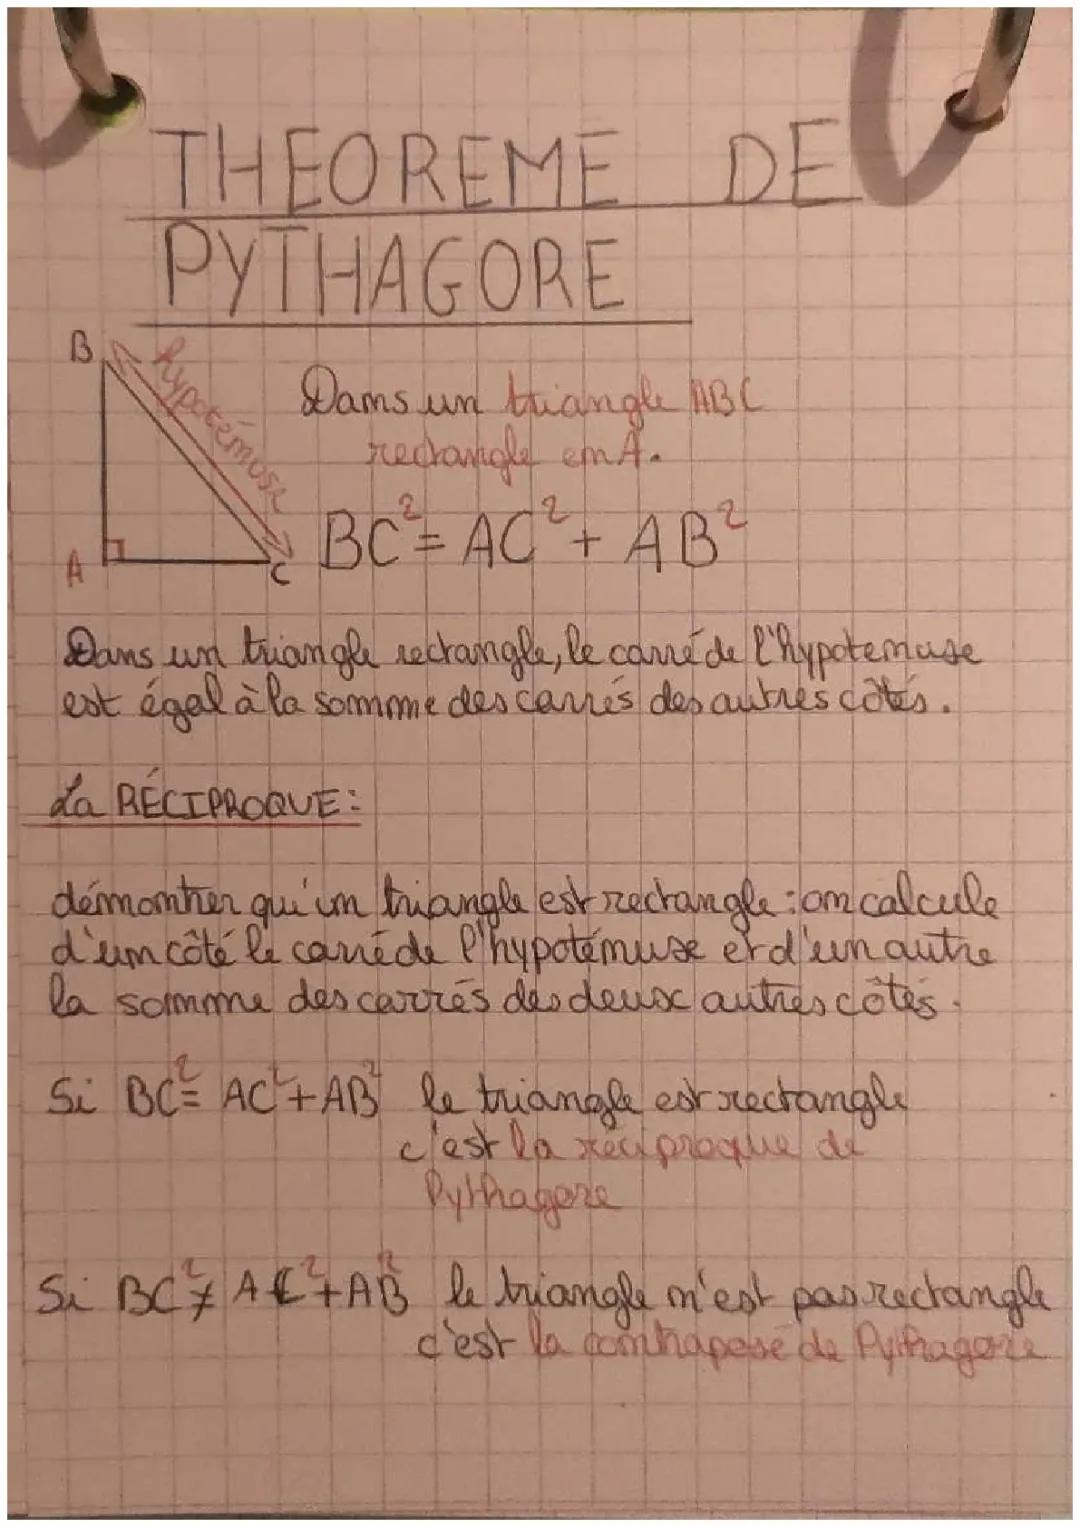 THEOREME DE
PYTHAGORE
B
hypoténuse
A
C
Dans un triangle ABC
rectangle en A.
BC² = AC² + AB²
Dans un triangle rectangle, le carré de l'hypotenuse
est égal à la somme des carrés des autres côtés.
La RÉCIPROQUE:
démontrer qu'un triangle est rectangle : on calcule
d'un côté le carré de l'hypoténuse et d'un autre
la somme des carrés des deux autres côtés.
Si BC² = AC² + AB² le triangle est rectangle
c'est la réciproque de
Pythagore
Si BC² ≠ AC² + AB² le triangle n'est pas rectangle
c'est la contraposé de Pythagore